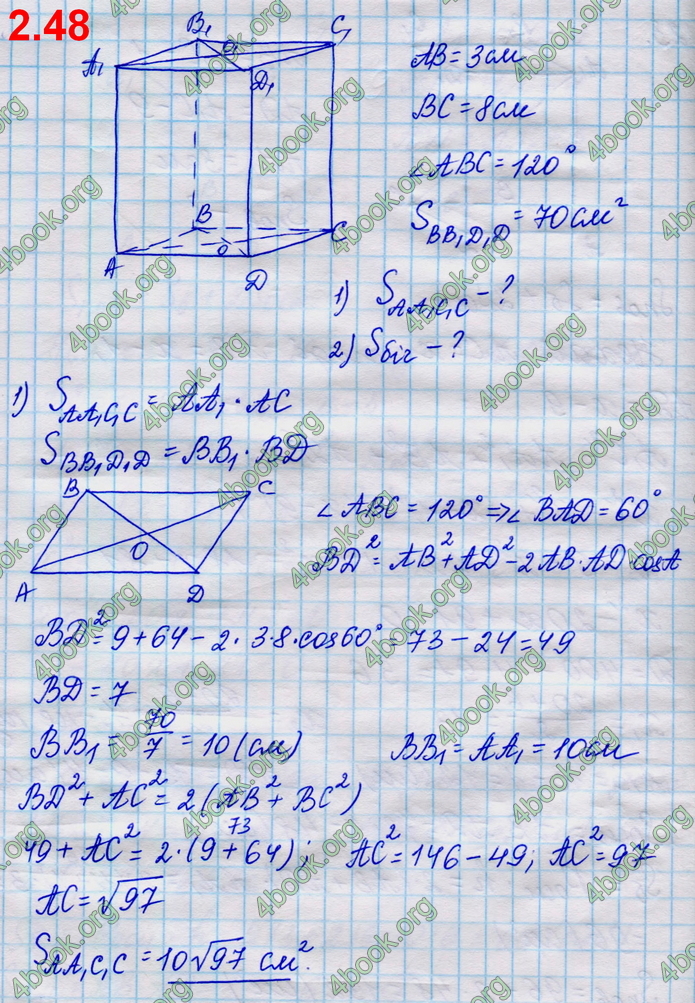 2.48
B₁ C₁
O₁
A₁ D₁
B C
O
A D
AB = 3см
BC = 8см
∠ABC = 120°
S_BB₁D₁D = 70см²
1) S_AA₁C₁C - ?
2) Sбіч - ?
1) S_AA₁C₁C = AA₁ · AC
S_BB₁D₁D = BB₁ · BD
B C
O
A D
∠ABC = 120° ⇒ ∠BAD = 60°
BD² = AB² + AD² - 2AB·AD cosA
BD² = 9 + 64 - 2 · 3·8·cos60° = 73 - 24 = 49
BD = 7
BB₁ = 70/7 = 10 (см) BB₁ = AA₁ = 10см
BD² + AC² = 2(AB² + BC²)
73
49 + AC² = 2·(9 + 64); AC² = 146 - 49; AC² = 97
AC = √97
S_AA₁C₁C = 10√97 см².
4book.org